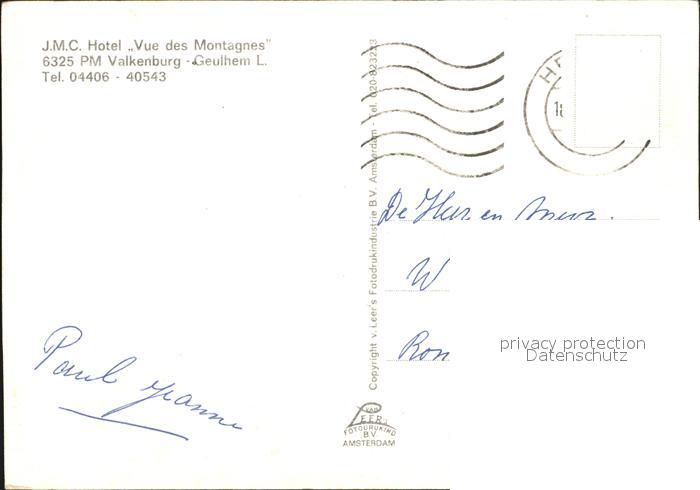 J.M.C. Hotel „Vue des Montagnes”
6325 PM Valkenburg - Geulhem L.
Tel. 04406 - 40543
Copyright v. Leer's Fotodrukindustrie B.V. Amsterdam - Tel. 020-823223
De Heer en Mevr.
W
Ron
privacy protection
Datenschutz
Paul Jeanne
VAN
LEER'S
FOTODRUKIND
B.V
AMSTERDAM